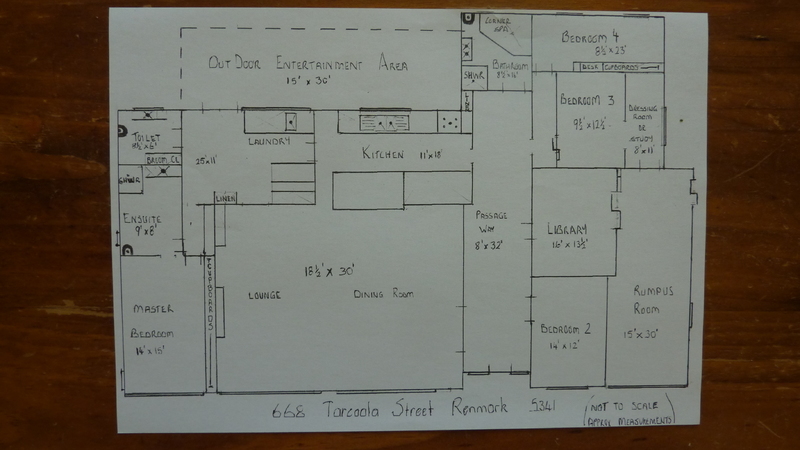 CORNER
SPA
BEDROOM 4
8½' x 23'
OUT DOOR ENTERTAINMENT AREA
15' x 30'
BATHROOM
SHWR
DESK CUPBOARDS
BEDROOM 3
9½' x 12½'
DRESSING
ROOM
OR
STUDY
8' x 11'
TOILET
BROOM CL
SHWR
LAUNDRY
25' x 11'
LINEN
KITCHEN 11' x 18'
ENSUITE
9' x 8'
PASSAGE
WAY
8' x 32'
LIBRARY
16' x 13½'
18½' x 30'
LOUNGE DINING ROOM
CUPBOARDS
MASTER
BEDROOM
RUMPUS
ROOM
15' x 30'
BEDROOM 2
14' x 12'
668 Tarcoola Street Renmark 5341
(NOT TO SCALE
APPRX MEASUREMENTS)